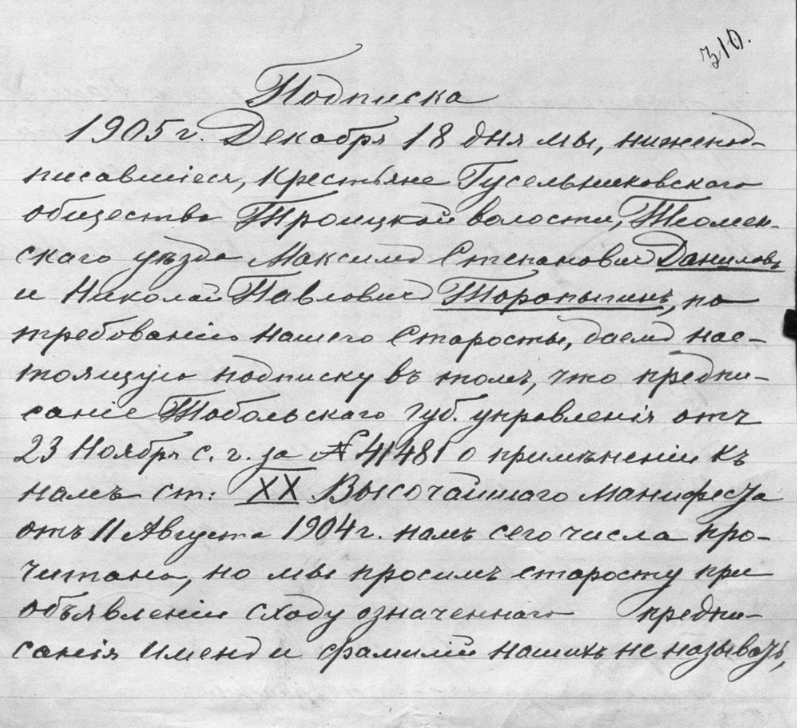 310.
Подписка
1905 г. Декабря 18 дня мы, нижепод-
писавшіеся, крестьяне Гусельниковскаго
общества Троицкой волости, Тюмен-
скаго уѣзда Максимъ Степановичъ Даниловъ
и Николай Павловичъ Торопыгинъ, по
требованію нашего Старосты, даемъ нас-
тоящую подписку въ томъ, что предпи-
саніе Тобольскаго губ. управленія отъ
23 Ноября с. г. за № 41481 о примѣненіи къ
намъ ст: XX Высочайшаго Манифеста
отъ 11 Августа 1904 г. намъ сего числа про-
читано, но мы просимъ старосту при
объявленіи сходу означеннаго предпи-
санія именъ и фамилій нашихъ не называть,